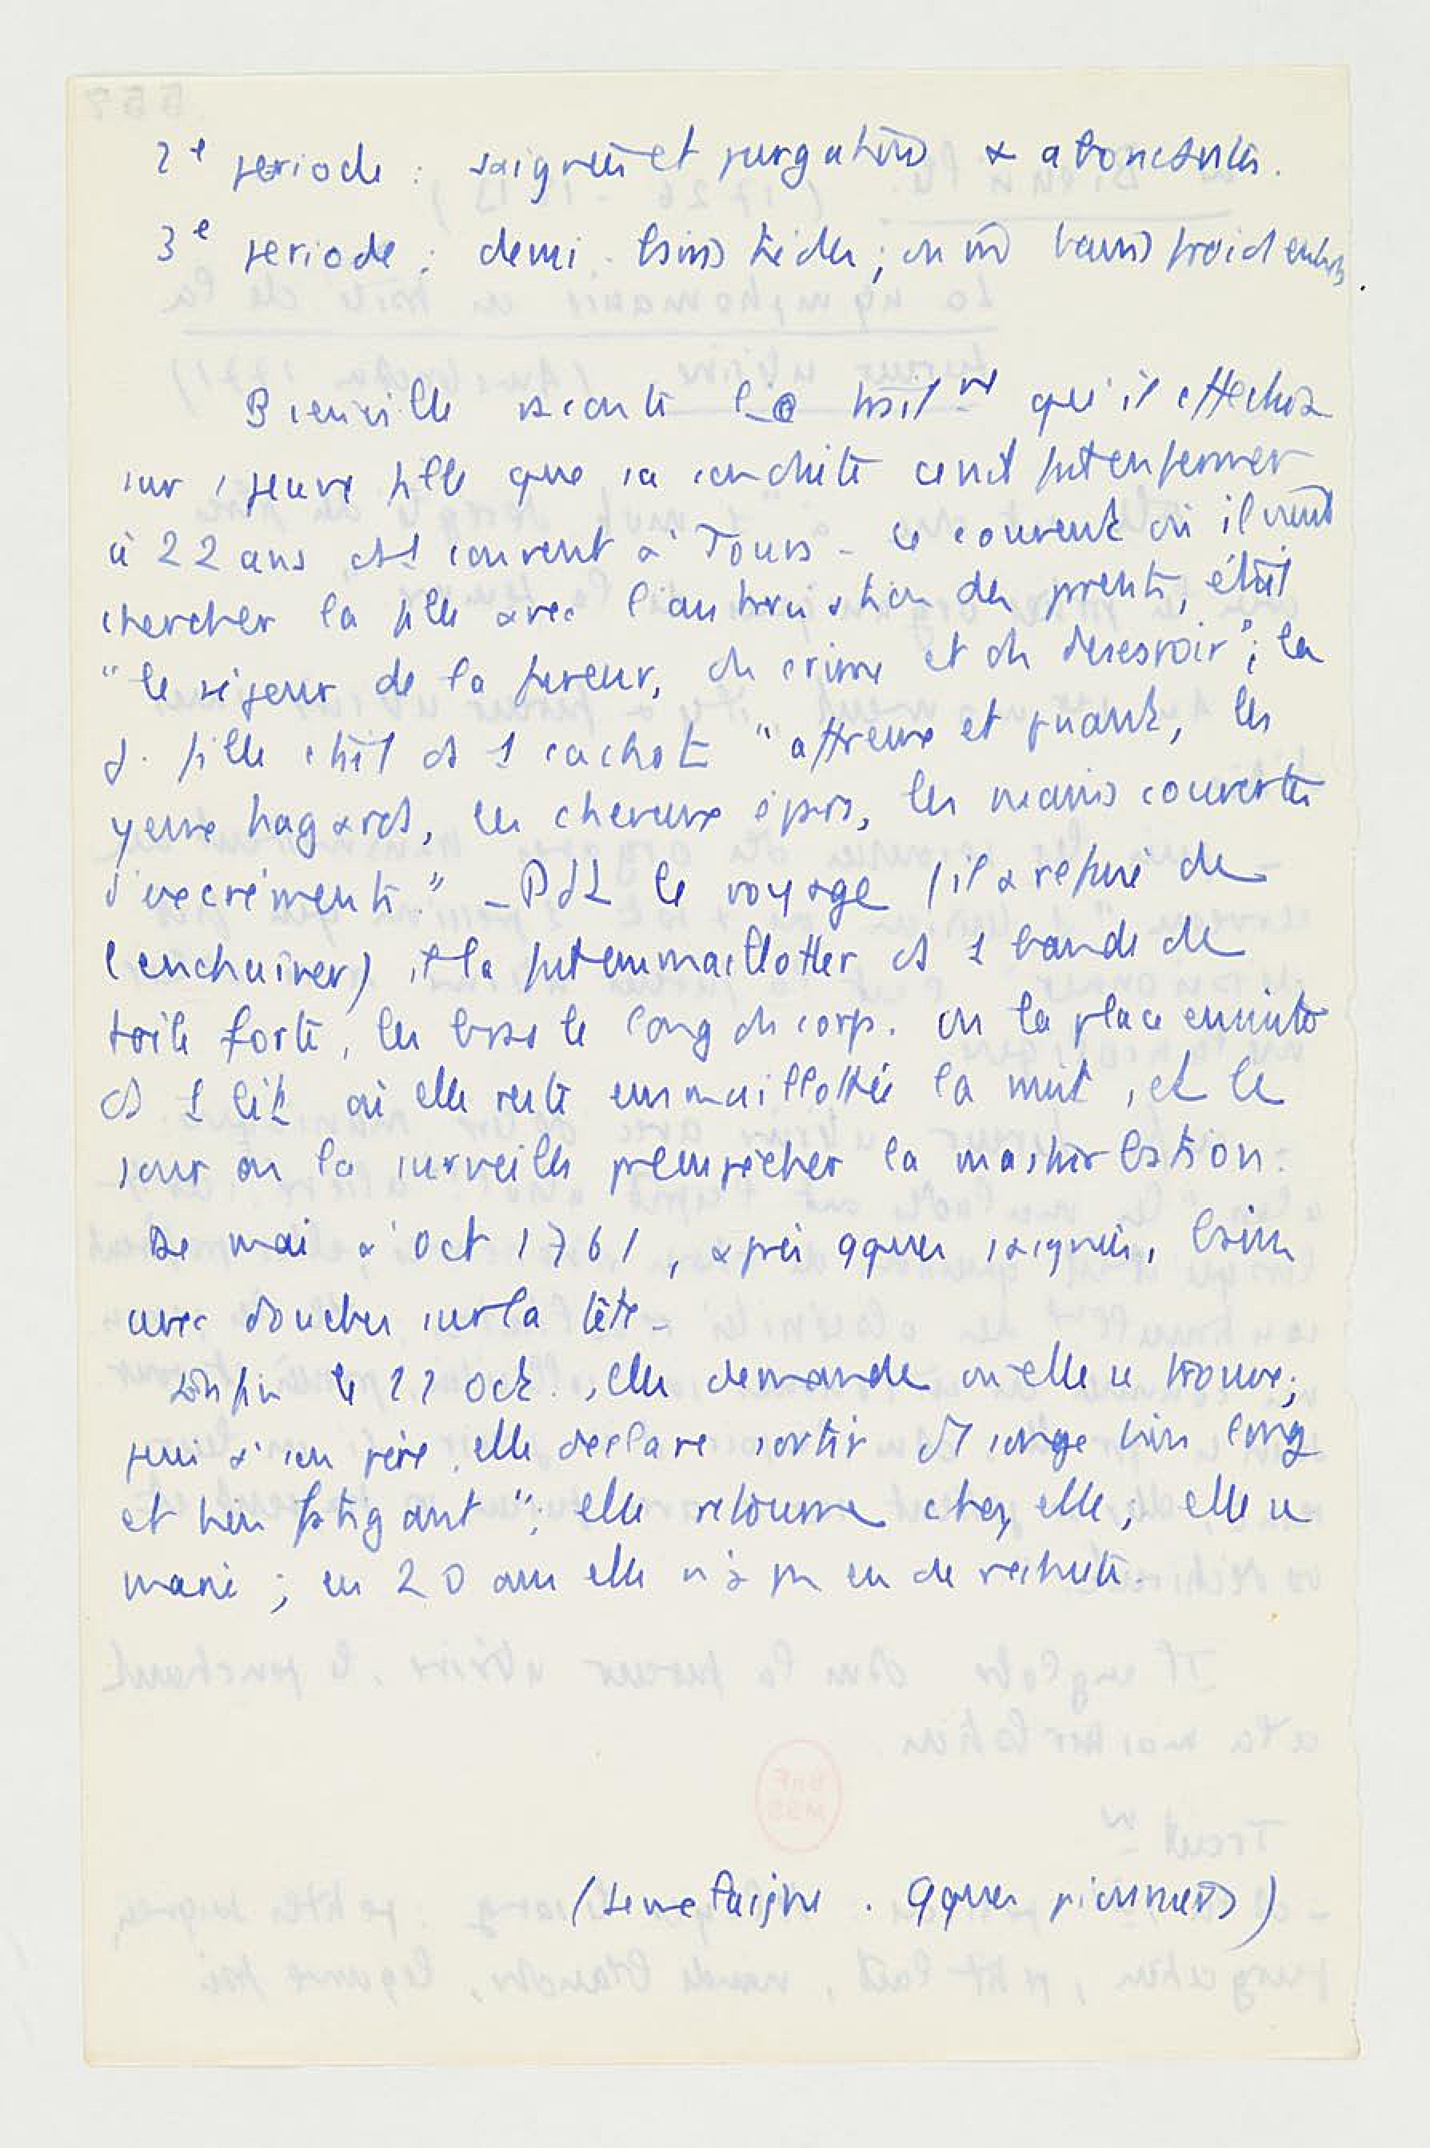 2e periode : saignées et purgations + abondantes.
3e periode : demi-bains tièdes ; ou m̂ bains froids entiers.
Bienville raconte le trait.nt qu'il effectua
sur 1 jeune fille que sa conduite avait fait enfermer
à 22 ans ds 1 couvent à Tours - Le couvent où il vient
chercher la fille avec l'autorisation des parents, était
"le séjour de la fureur, du crime et du desespoir" ; la
j. fille était ds 1 cachot "affreux et puant, les
yeux hagards, les cheveux épars, les mains couvertes
d'excréments." - Pdt le voyage (il a refusé de
l'enchainer) il la fait emmaillotter ds 1 bande de
toile forte, les bras le long du corps. On la place ensuite
ds 1 lit où elle reste emmaillottée la nuit, et le
jour on la surveille pr empêcher la masturbation.
De mai à oct 1761, après qques saignées, bains
avec douches sur la tête -
Enfin le 22 oct., elle demande où elle se trouve ;
puis à son père, elle declare sortir d'1 songe bien long
et bien fatigant" ; elle retourne chez elle ; elle se
marie ; en 20 ans elle n'a pas eu de rechute.
(Semelaigne . Qques pionniers)
BnF
MSS